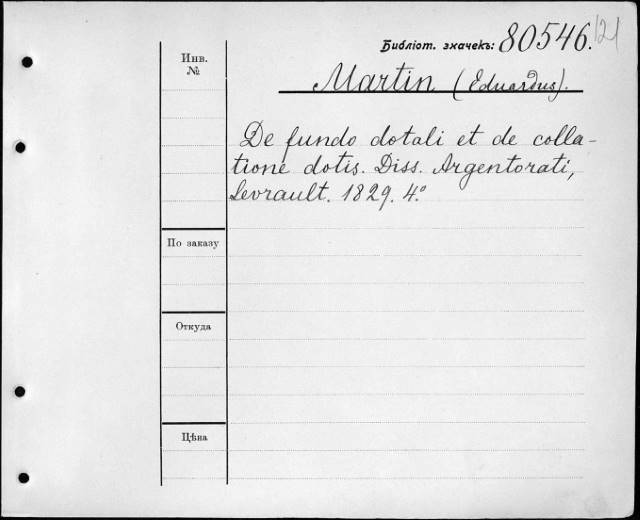 Библіот. значекъ: 80546. 121
Инв.
№
Martin (Eduardus).
De fundo dotali et de colla-
tione dotis. Diss. Argentorati,
Levrault. 1829. 4.º
По заказу
Откуда
Цѣна